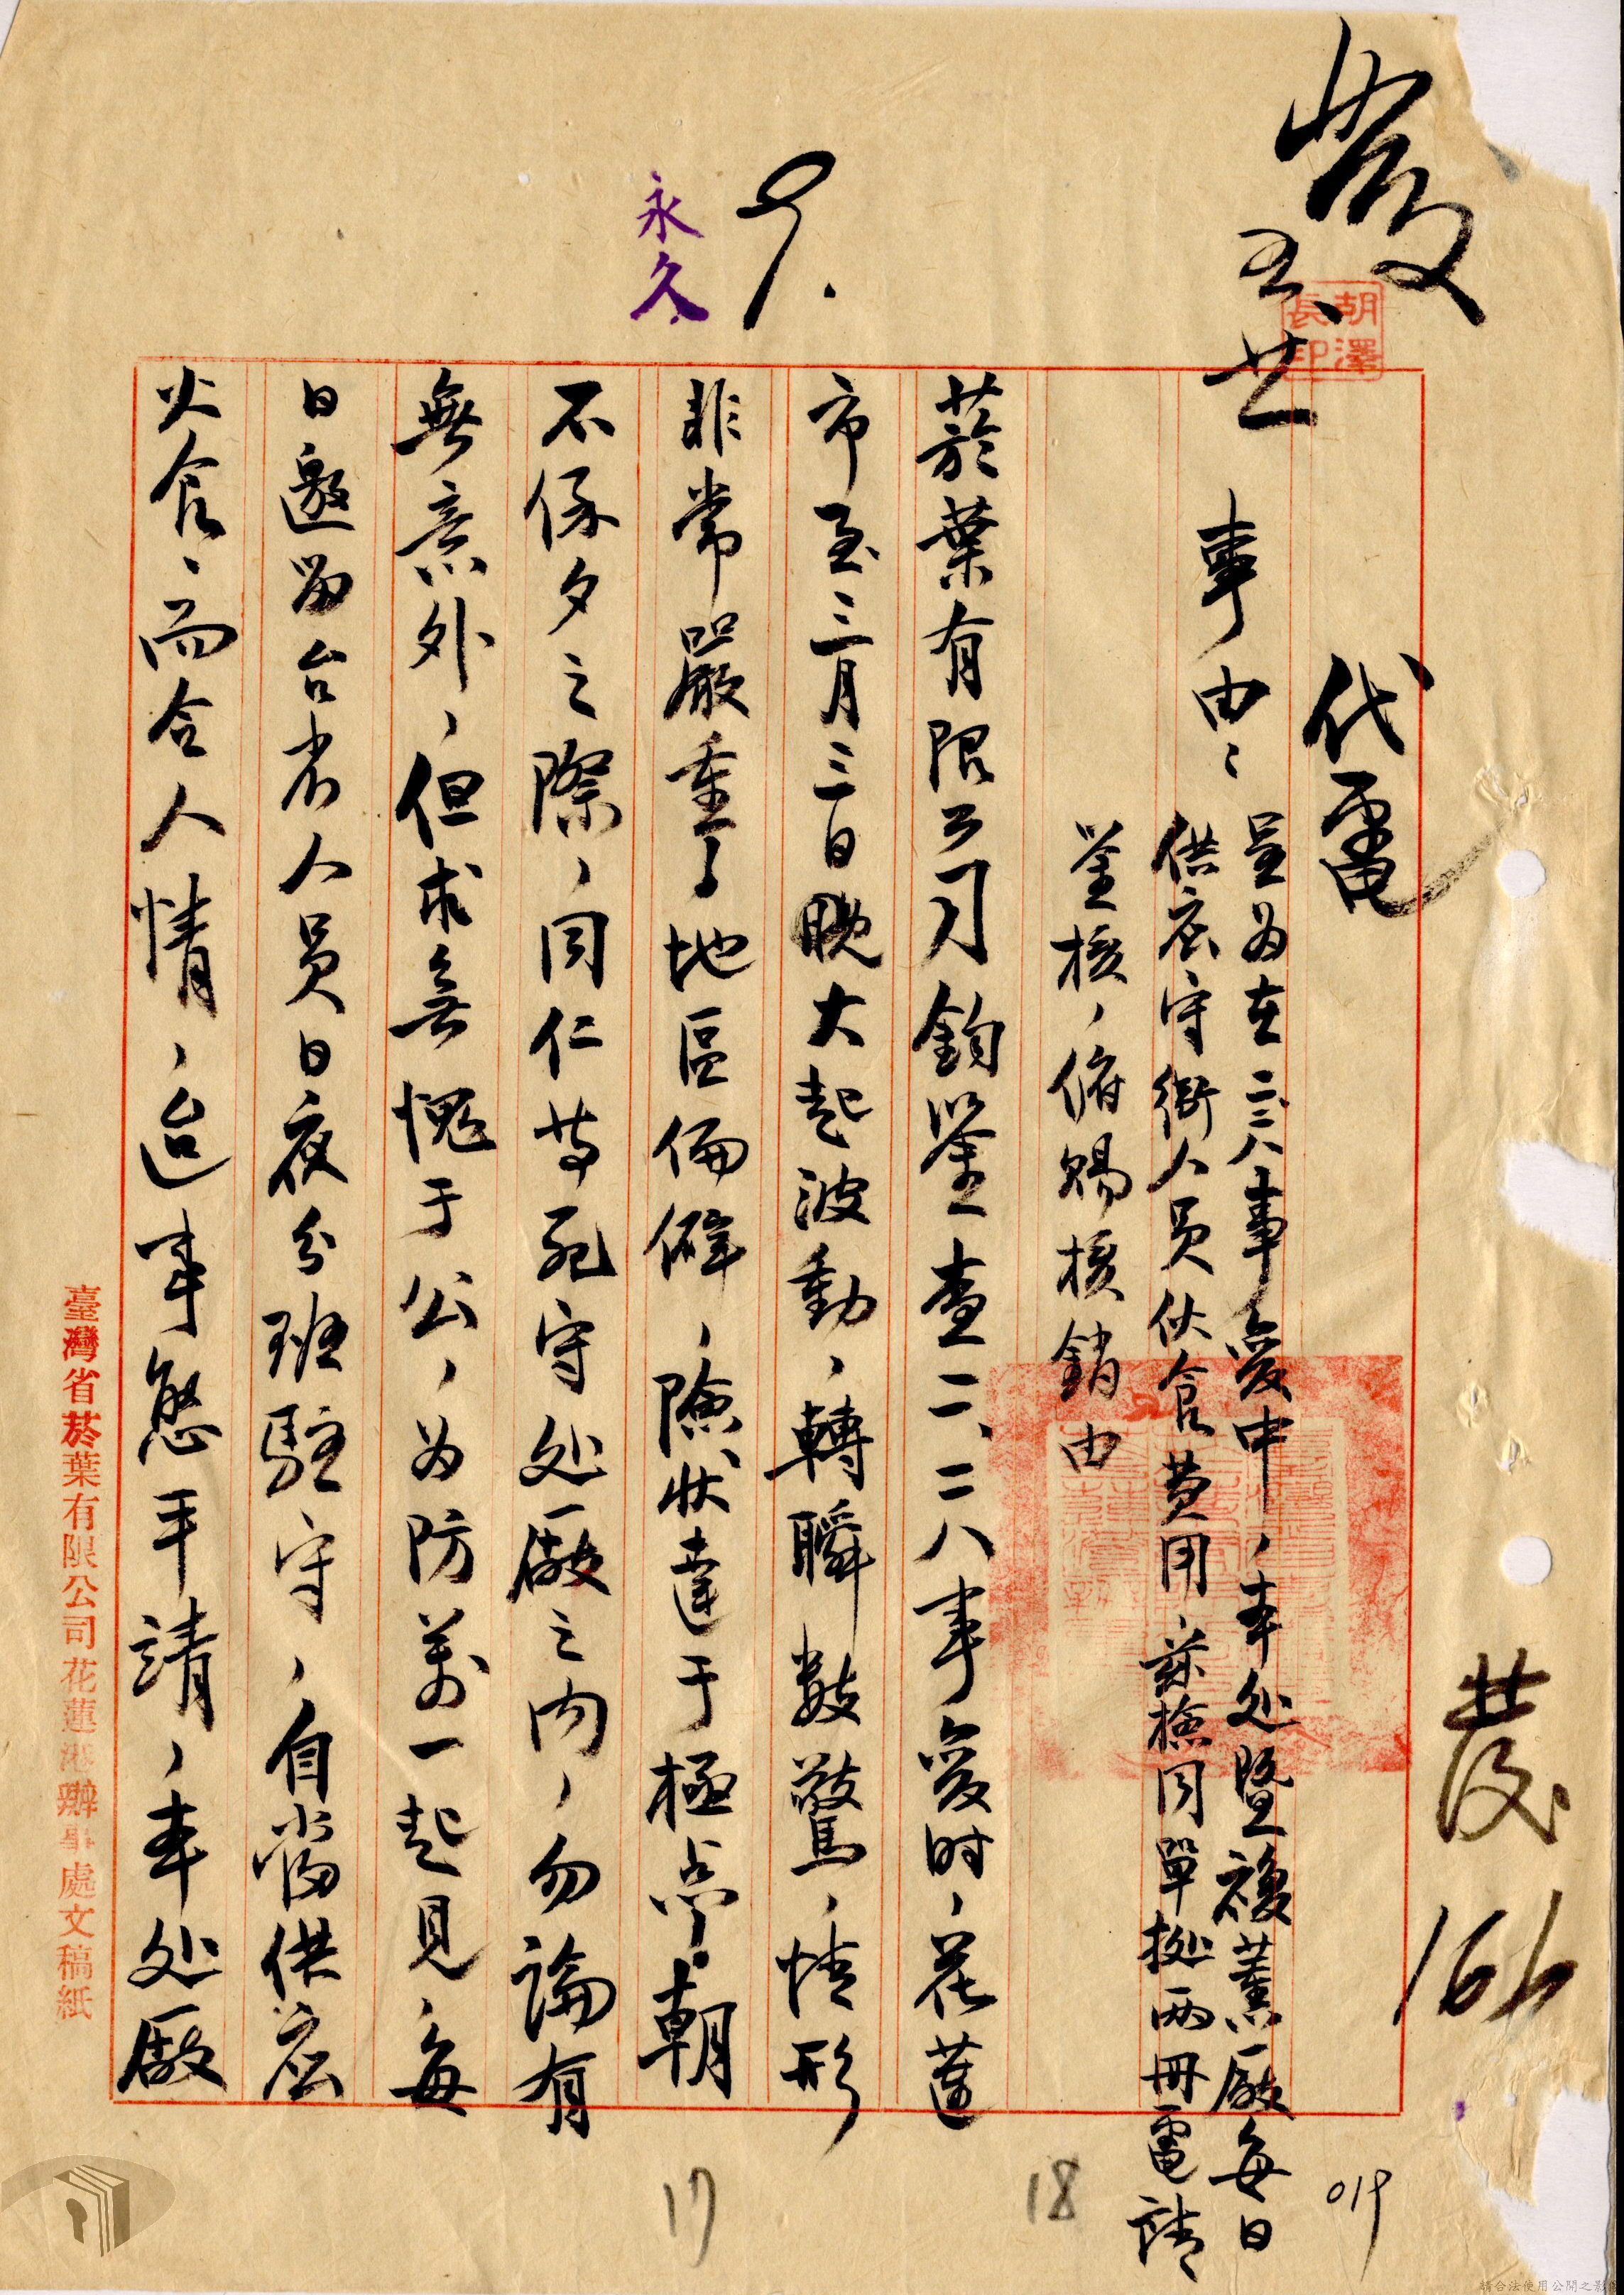 發
五、廿
胡澤長印
代電
事由:
呈為在二二八事變中,本处暨複薰廠每日
供应守衛人員伙食費用,茲檢同單據兩冊電請
鉴核,俯賜核銷由
菸葉有限公司鈞鉴查二、二八事變时,花蓮
市至三月三日晚大起波動,轉瞬數驚,情形
非常嚴重了地區偏僻,險状達于極点,朝
不保夕之際,同仁等死守处廠之内,勿論有
無意外,但求無愧于公,为防萬一起見,每
日邀留台省人員日夜分班駐守,自當供应
火食、而合人情,迨事態平靖,本处廠
永久
9.
發
166
019
18
17
臺灣省菸葉有限公司花蓮港辦事處文稿紙
請合法使用公開之影